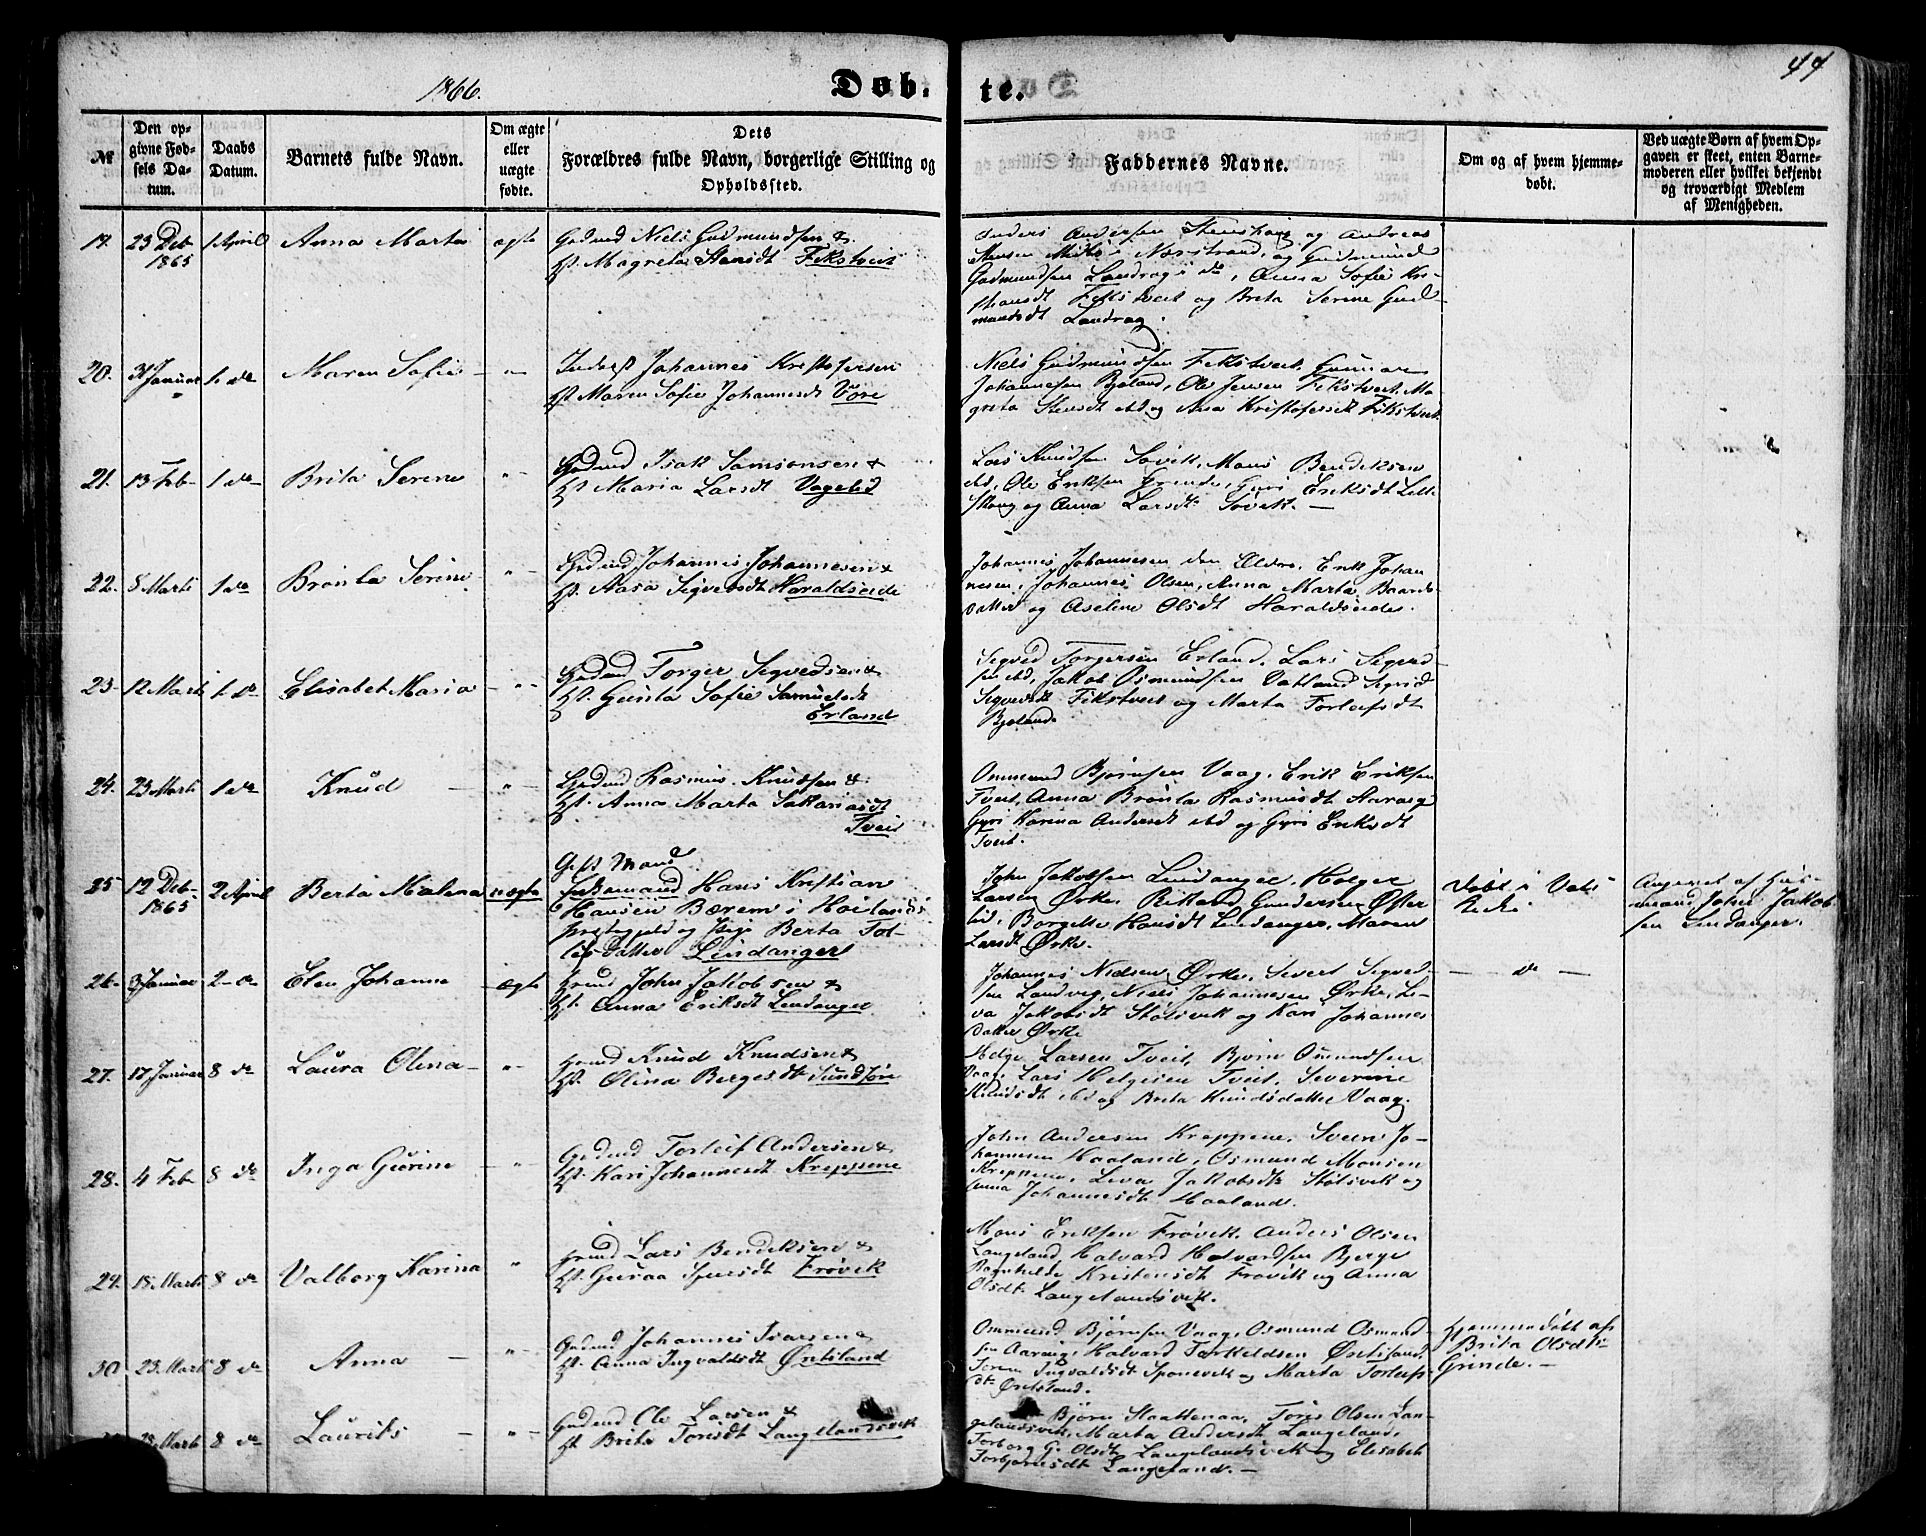 1866.
Døb-
te.
44
№
Den op-
givne Fød-
sels Da-
tum.
Daabs
Datum.
Barnets fulde Navn.
Om ægte
eller
uægte
fødte.
Dets
Forældres fulde Navn, borgerlige Stilling og
Opholdssted.
Faddernes Navne.
Om og af hvem hjemme-
døbt.
Ved uægte Børn af hvem Op-
gaven er skeet, enten Barne-
moderen eller hvilket bekjendt
og troværdigt Medlem
af Menigheden.
19. 23 Deb 1 April Anna Marta ægte Gadmd Niels Gudmundsen &
1865
Hst. Magreta Stensdt Fikstveit
Anders Andersen Stenskaug og Andreas
Monsen i Norstrand, og Gudmund
Gudmundsen Landrag i do, Anna Sofie Kri-
stiansdt Fikstveit og Brita Serine Gud-
mundsdt Landrag.
20. 31 Januar 1 do Maren Sofie - " - Inderst Johannes Kristofersen
Hst. Maren Sofie Johannesdt Vore
Niels Gudmundsen Fikstveit, Gunnar
Johannesen Bjoland, Ole Jensen Fikstveit, Ma-
greta Stensdt ibd og Ana Kristofersdt Fikstveit.
21. 13 Feb 1 do Brita Serine " Grdmd Isak Samsonsen &
Hst. Maria Larsdt Vagelid
Lars Knudsen Søvik, Mons Bendiksen
ibd, Ole Eriksen Grinde, Guri Eriksdt Lille-
skong og Anna Larsdt. Søvik.
22. 8 Marts 1 do Brønla Serine " Grdmd Johannes Johannesen &
Hst. Aasa Sigvedsdt Haraldseide
Johannes Johannesen den Eldre, Erik Johan-
nesen, Johannes Olsen, Anna Marta Baards-
datter og Aseline Olsdt Haraldseide.
23. 12 Marts 1 do Elisabet Maria " Grdmd Torger Sigvedsen &
Hst. Gunla Sofie Samuelsdt
Erland
Sigved Torgersen Erland, Lars Sigved-
sen ibd, Jakob Osmundsen Vatland Sigrid
Sigvedsdt Fikstveit og Marta Torleifsdt
Bjoland.
24. 23 Marts 1 do Knud - " - Grdmd Rasmus Knudsen &
Hst. Anna Marta Sakariasdt
Tveit
Ommund Bjørnsen Vaag, Erik Eriksen
Tveit, Anna Brønla Rasmusdt Aarvig
Guri Karina Andersdt ibd og Guri Eriksdt
Tveit.
25 12 Deb 2 April Berta Malena uægte Gift Mand
1865
Hans Kristian
Hansen Børem i Høilands
præstegjeld og Pige Berta Tol-
lefs Datter Lindanger
John Jakobsen Lindanger, Holger
Larsen Ørke, Rikard Gundersen Øster
lid, Borgille Hansdt Lindanger, Maren
Larsdt Ørke.
Døbt i Vats
Kirke.
Angivet af Hus-
mand John Jakob-
sen Lindanger.
26. 3 Januar 2 do Elen Johanne - ægte Grmd John Jakobsen &
Hst. Anna Eriksdt Lindanger
Johannes Nielsen Ørke, Sivert Sigved-
sen Landvig, Niels Johannesen Ørke, Li-
va Jakobsdt Stølsvik og Kari Johannes
datter Ørke
- do -
27. 17 Januar 8 do Laura Olina - " - Grmd Knud Knudsen &
Hst. Olina Bergesdt Sundføre
Helge Larsen Tveit, Bjørn Osmundsen
Vaag, Lars Helgesen Tveit, Severine
Knudsdt ibd og Brita Knudsdatter Vaag.
28. 4 Feb 8 do Inga Gurine - " Grdmd Torleif Andersen &
Hst. Kari Johannesdt Kreppene
John Andersen Kreppene, Sven Jo-
hannesen Haaland, Osmund Monsen
Kreppene, Liva Jakobsdt Stølsvik og
Anna Johannesdt Haaland.
29. 18. Marts 8 do Valborg Karina " Grmd Lars Bendiksen &
Hst. Guraa Sjursdt Frøvik
Mons Eriksen Frøvik, Anders Olsen
Langeland, Halvard Halvardsen Bjerge
Ragnhilde Kristensdt Frøvik og Anna
Olsdt. Langelandsvik.
30. 23. Marts 8 do Anna - " - Grdmd Johannes Ivarsen &
Hst. Anna Ingvaldsdt Østiland
Ommund Bjørnsen Vaag, Osmund Osmund-
sen Aarvig, Halvard Torkeldsen
Toren Ingvaldsdt Sponevik og Marta Torleifs-
dt.
Hjemmedøbt af
Brita Olsdt
Grinde.
28 Marts 8 do Laurits - " - Grdmd Ole Larsen &
Hst Brita Torisdt Langelandsvik
Bjørn Slaattenaa, Tøris Olsen Lan-
gelandsvik, Marta Andersdt Langeland,
Torborg G. Olsdt Langelandsvik og Elisabet
Torbjørnsdt Langeland.